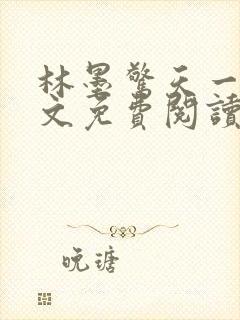 林墨驚天一
文免費閱讀
晚瑭